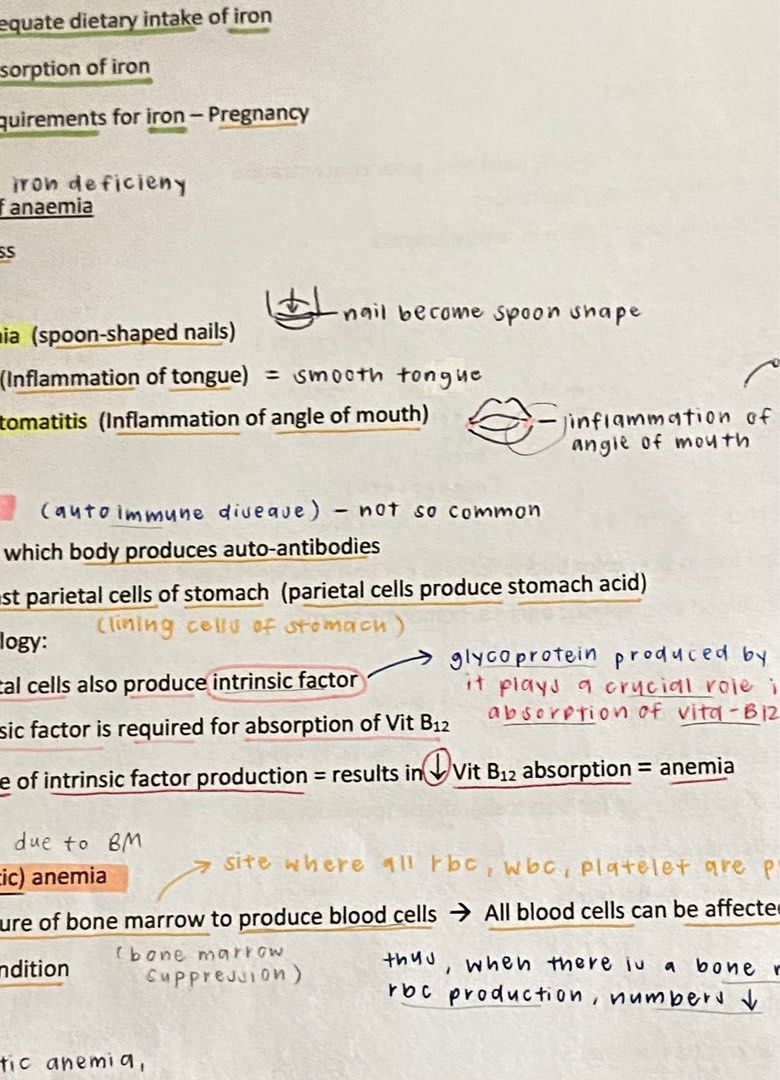 equate dietary intake of iron
sorption of iron
quirements for iron – Pregnancy
iron deficieny
f anaemia
ss
nail become spoon shape
ia (spoon-shaped nails)
(Inflammation of tongue) = smooth tongue
tomatitis (Inflammation of angle of mouth) inflammation of
angle of mouth
(autoimmune disease) - not so common
which body produces auto-antibodies
st parietal cells of stomach (parietal cells produce stomach acid)
(lining cells of stomach)
logy:
glycoprotein produced by
tal cells also produce intrinsic factor → it plays a crucial role i
absorption of vita-B12
sic factor is required for absorption of Vit B₁₂
e of intrinsic factor production = results in ↓ Vit B₁₂ absorption = anemia
due to BM
site where all rbc, wbc, platelet are p
ic) anemia
ure of bone marrow to produce blood cells → All blood cells can be affecte
(bone marrow
suppression)
ndition
thus, when there is a bone
rbc production, numbers ↓
tic anemia,